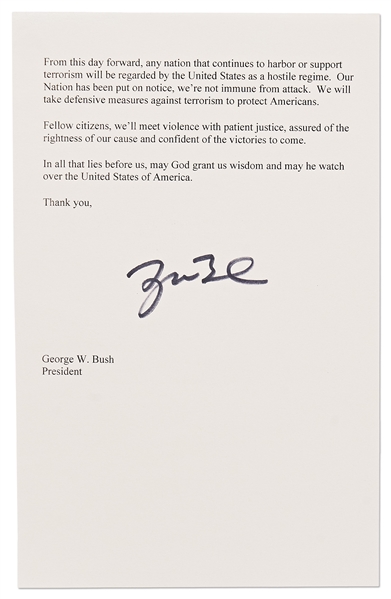 From this day forward, any nation that continues to harbor or support
terrorism will be regarded by the United States as a hostile regime. Our
Nation has been put on notice, we're not immune from attack. We will
take defensive measures against terrorism to protect Americans.
Fellow citizens, we'll meet violence with patient justice, assured of the
rightness of our cause and confident of the victories to come.
In all that lies before us, may God grant us wisdom and may he watch
over the United States of America.
Thank you,
George W. Bush
President